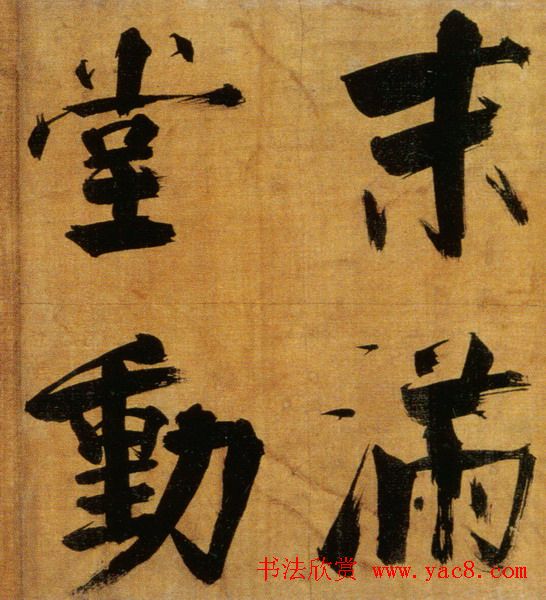 末满
堂動
书法欣赏 www.yac8.com